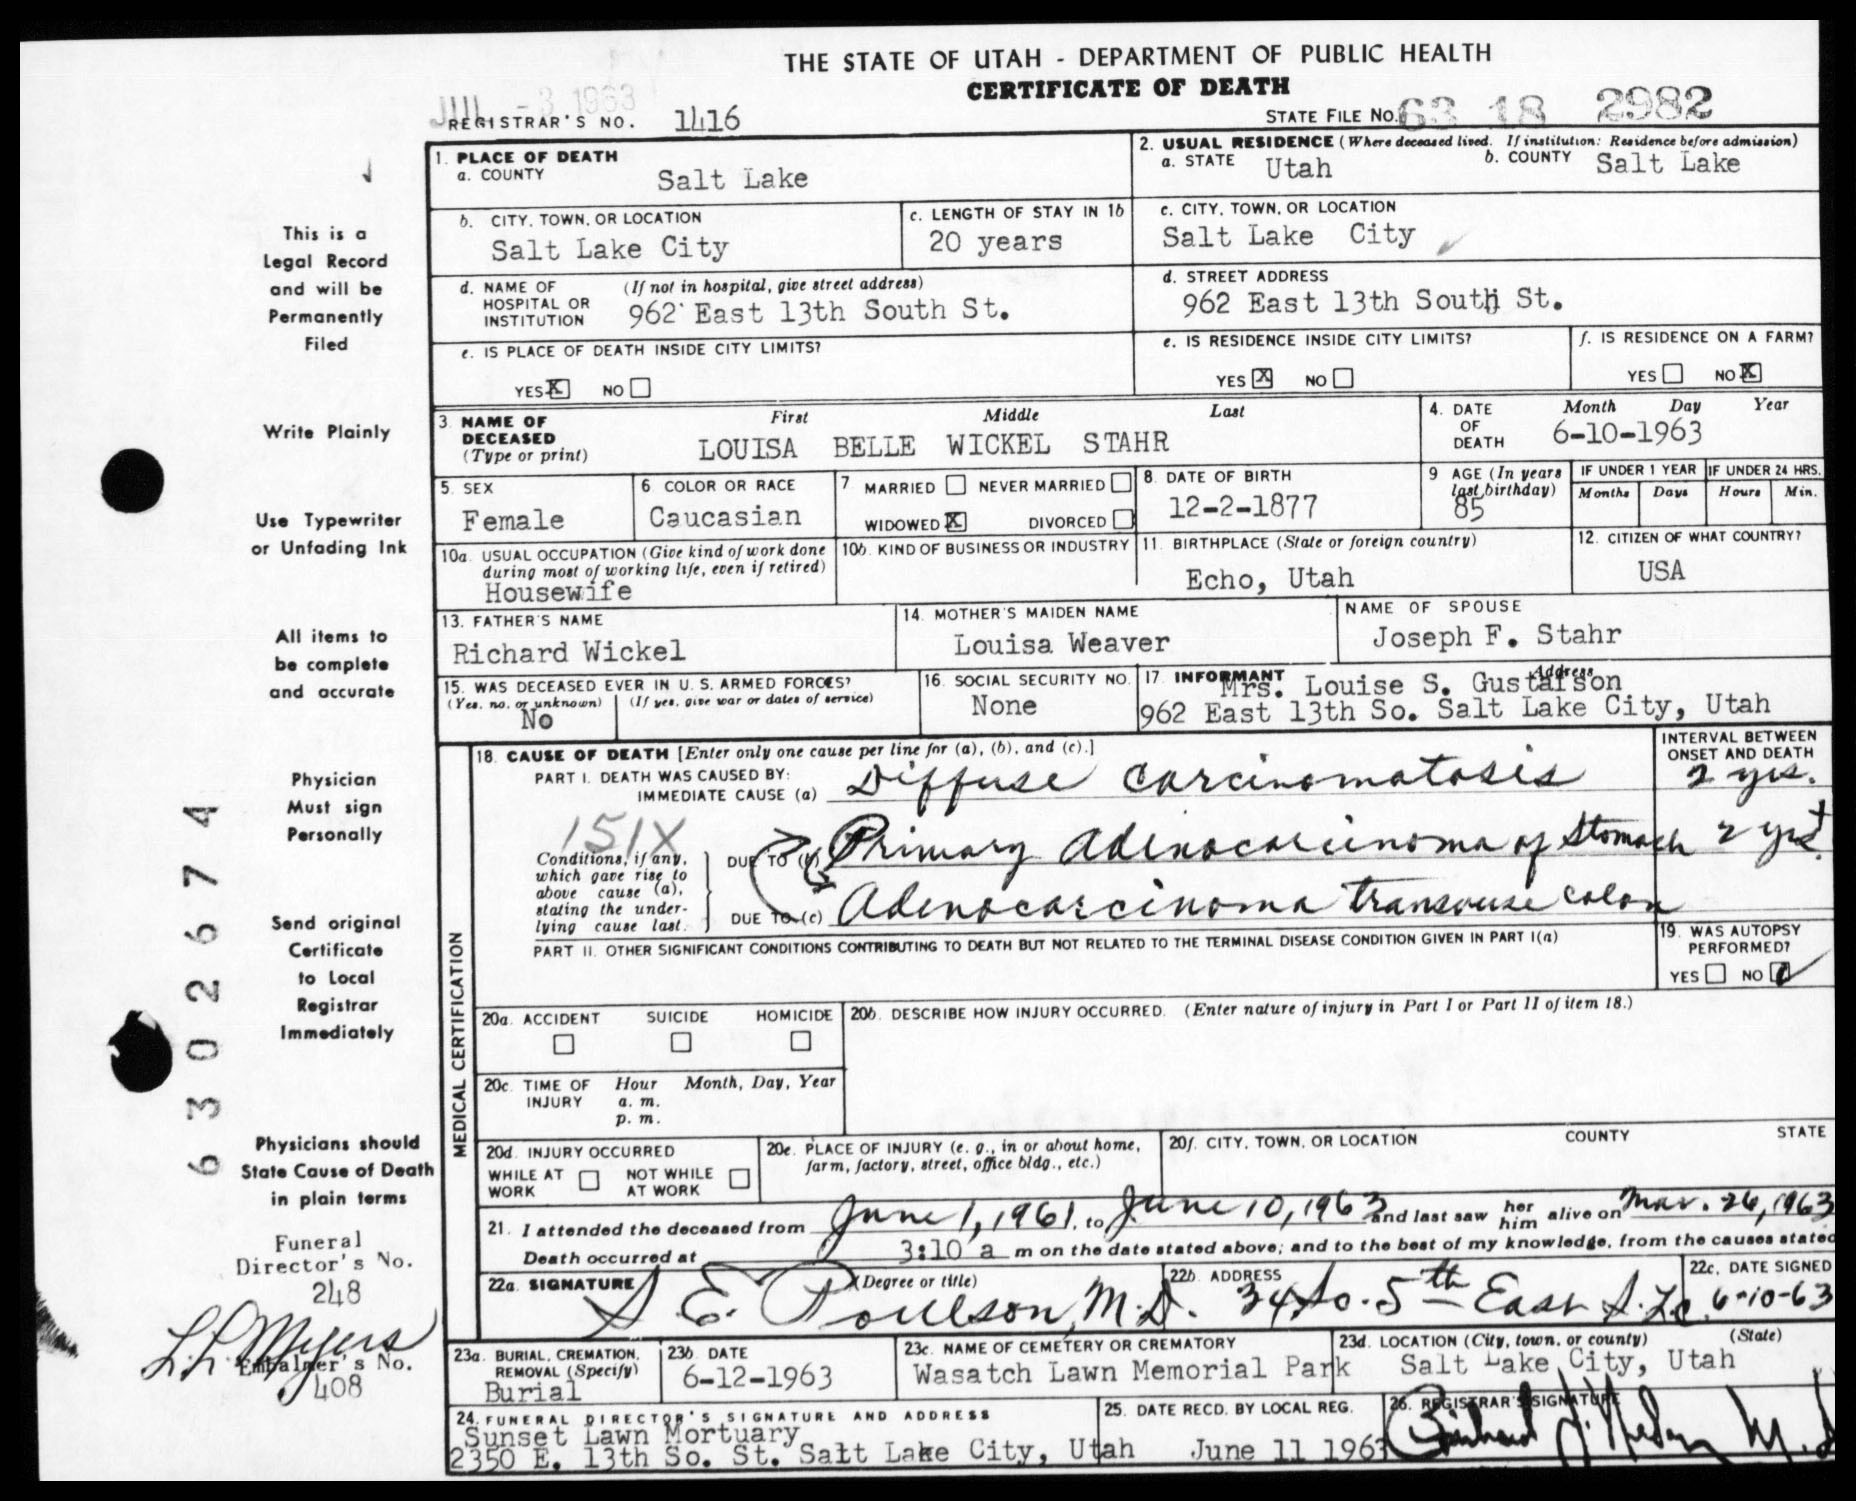 THE STATE OF UTAH - DEPARTMENT OF PUBLIC HEALTH
CERTIFICATE OF DEATH
JUL - 3 1963
REGISTRAR'S NO. 1416
STATE FILE NO. 63 18 2982
This is a
Legal Record
and will be
Permanently
Filed
Write Plainly
Use Typewriter
or Unfading Ink
All items to
be complete
and accurate
Physician
Must sign
Personally
Send original
Certificate
to Local
Registrar
Immediately
Physicians should
State Cause of Death
in plain terms
Funeral
Director's No.
248
L. L. Myers
Embalmer's No.
408
6302674
1. PLACE OF DEATH
a. COUNTY
Salt Lake
2. USUAL RESIDENCE (Where deceased lived. If institution: Residence before admission)
a. STATE Utah b. COUNTY Salt Lake
b. CITY, TOWN, OR LOCATION
Salt Lake City
c. LENGTH OF STAY IN 1b
20 years
c. CITY, TOWN, OR LOCATION
Salt Lake City
d. NAME OF HOSPITAL OR INSTITUTION (If not in hospital, give street address)
962 East 13th South St.
d. STREET ADDRESS
962 East 13th South St.
e. IS PLACE OF DEATH INSIDE CITY LIMITS?
YES X NO
e. IS RESIDENCE INSIDE CITY LIMITS?
YES X NO
f. IS RESIDENCE ON A FARM?
YES NO X
3. NAME OF DECEASED (Type or print)
First Middle Last
LOUISA BELLE WICKEL STAHR
4. DATE OF DEATH Month Day Year
6-10-1963
5. SEX
Female
6. COLOR OR RACE
Caucasian
7. MARRIED NEVER MARRIED
WIDOWED X DIVORCED
8. DATE OF BIRTH
12-2-1877
9 AGE (In years last birthday)
85
IF UNDER 1 YEAR
Months Days
IF UNDER 24 HRS.
Hours Min.
10a. USUAL OCCUPATION (Give kind of work done during most of working life, even if retired)
Housewife
10b. KIND OF BUSINESS OR INDUSTRY
11. BIRTHPLACE (State or foreign country)
Echo, Utah
12. CITIZEN OF WHAT COUNTRY?
USA
13. FATHER'S NAME
Richard Wickel
14. MOTHER'S MAIDEN NAME
Louisa Weaver
NAME OF SPOUSE
Joseph F. Stahr
15. WAS DECEASED EVER IN U. S. ARMED FORCES?
(Yes, no, or unknown) (If yes, give war or dates of service)
No
16. SOCIAL SECURITY NO.
None
17. INFORMANT Address
Mrs. Louise S. Gustafson
962 East 13th So. Salt Lake City, Utah
MEDICAL CERTIFICATION
18. CAUSE OF DEATH [Enter only one cause per line for (a), (b), and (c).]
INTERVAL BETWEEN ONSET AND DEATH
PART I. DEATH WAS CAUSED BY:
IMMEDIATE CAUSE (a) Diffuse carcinomatosis 2 yrs.
151X
Conditions, if any, which gave rise to above cause (a), stating the underlying cause last.
DUE TO (b) Primary Adenocarcinoma of Stomach 2 yrs ±
DUE TO (c) Adenocarcinoma transverse colon
PART II. OTHER SIGNIFICANT CONDITIONS CONTRIBUTING TO DEATH BUT NOT RELATED TO THE TERMINAL DISEASE CONDITION GIVEN IN PART I(a)
19. WAS AUTOPSY PERFORMED?
YES NO ✓
20a. ACCIDENT SUICIDE HOMICIDE
20b. DESCRIBE HOW INJURY OCCURRED. (Enter nature of injury in Part I or Part II of item 18.)
20c. TIME OF INJURY Hour Month, Day, Year
a. m.
p. m.
20d. INJURY OCCURRED
WHILE AT WORK NOT WHILE AT WORK
20e. PLACE OF INJURY (e. g., in or about home, farm, factory, street, office bldg., etc.)
20f. CITY, TOWN, OR LOCATION COUNTY STATE
21. I attended the deceased from June 1, 1961, to June 10, 1963 and last saw her him alive on Mar. 26, 1963
Death occurred at 3:10 a m on the date stated above; and to the best of my knowledge, from the causes stated
22a. SIGNATURE (Degree or title)
S E. Poulson, M.D.
22b. ADDRESS
34 So. 5th East S.L.C.
22c. DATE SIGNED
6-10-63
23a. BURIAL, CREMATION, REMOVAL (Specify)
Burial
23b. DATE
6-12-1963
23c. NAME OF CEMETERY OR CREMATORY
Wasatch Lawn Memorial Park
23d. LOCATION (City, town, or county) (State)
Salt Lake City, Utah
24. FUNERAL DIRECTOR'S SIGNATURE AND ADDRESS
Sunset Lawn Mortuary
2350 E. 13th So. St. Salt Lake City, Utah
25. DATE RECD. BY LOCAL REG.
June 11 1963
26. REGISTRAR'S SIGNATURE